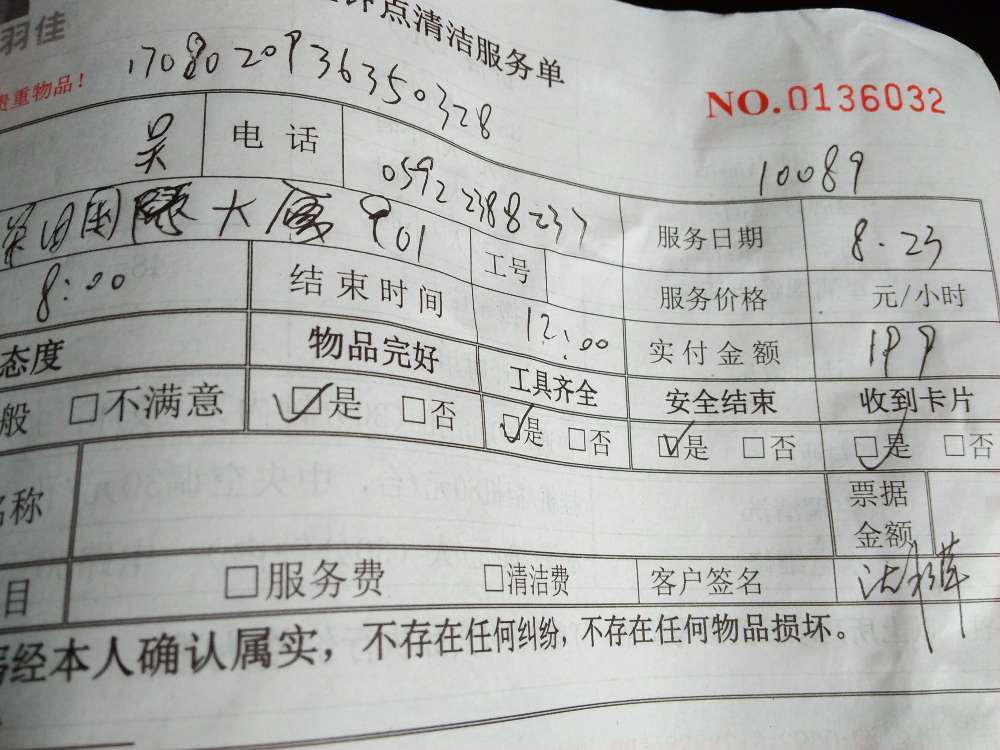 羽佳
钟点清洁服务单
贵重物品！
1708020936350328
NO.0136032
10089
吴 电话 0592 2388237 服务日期 8.23
国际大厦901 工号 服务价格 元/小时
8:00 结束时间 12:00 实付金额 199
态度 物品完好 工具齐全 安全结束 收到卡片
般 □不满意 □是 □否 □是 □否 □是 □否 □是 □否
名称 票据金额
目 □服务费 □清洁费 客户签名
经本人确认属实，不存在任何纠纷，不存在任何物品损坏。